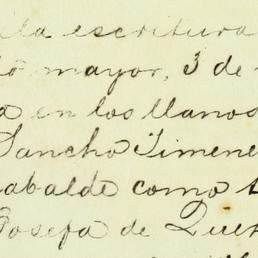 la escritura
mayor, 3 de
a en los llanos
Sancho Jimene
abalde como t
Josefa de Que